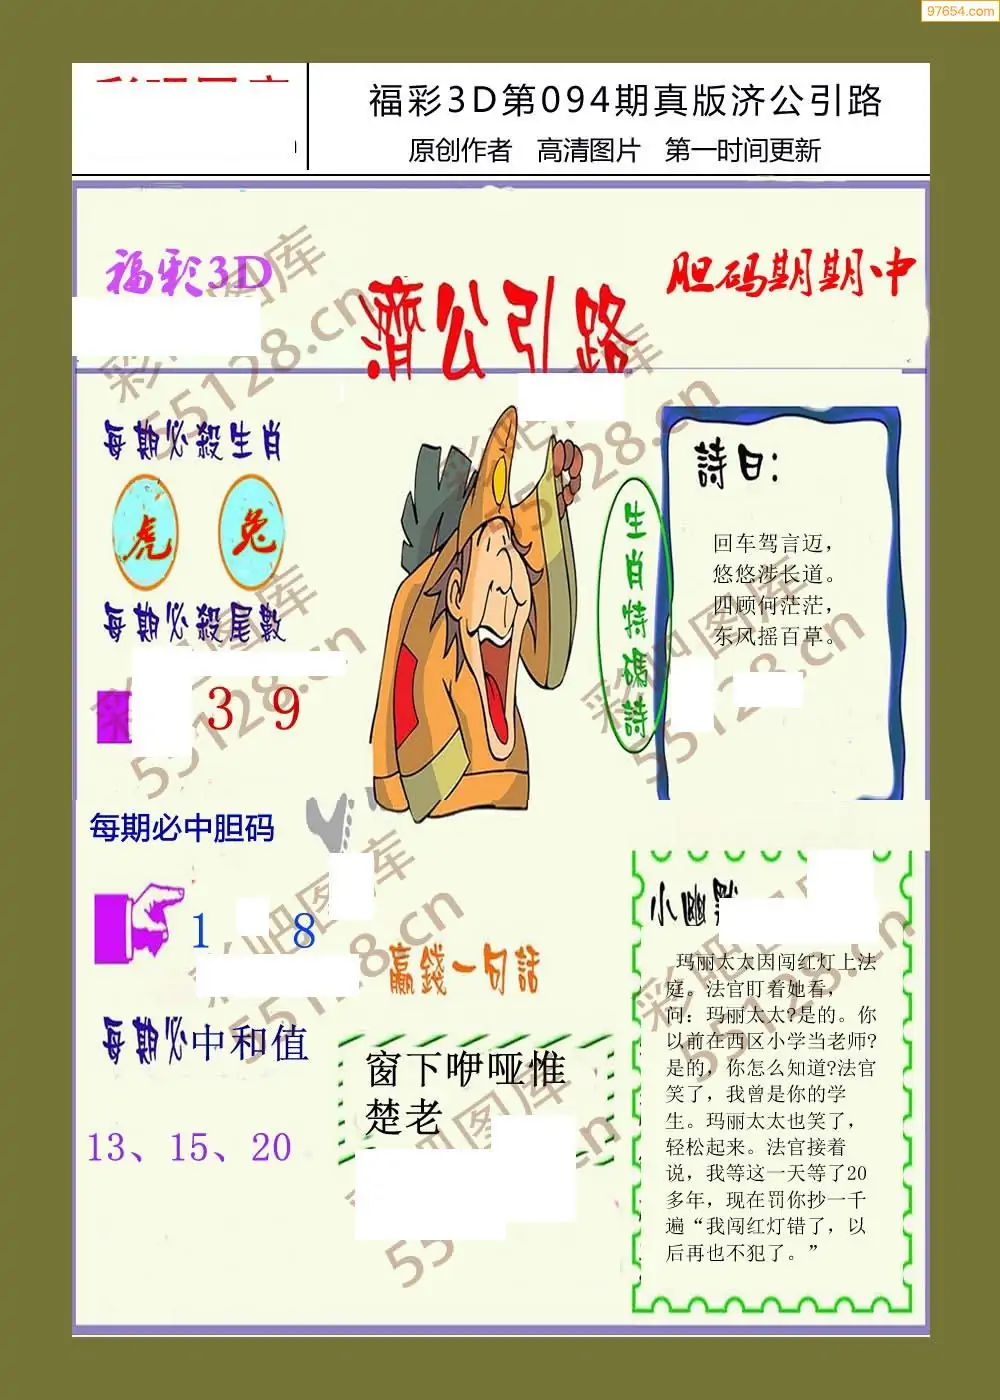 97654.com
福彩3D第094期真版济公引路
原创作者 高清图片 第一时间更新
福彩3D
胆码期期中
濟公引路
每期必殺生肖
虎 兔
每期必殺尾數
3 9
每期必中胆码
1 8
每期必中和值
13、15、20
生肖特碼詩
詩曰:
回车驾言迈，
悠悠涉长道。
四顾何茫茫，
东风摇百草。
贏錢一句話
窗下咿哑惟
楚老
小幽默
玛丽太太因闯红灯上法
庭。法官盯着她看，
问：玛丽太太?是的。你
以前在西区小学当老师?
是的，你怎么知道?法官
笑了，我曾是你的学
生。玛丽太太也笑了，
轻松起来。法官接着
说，我等这一天等了20
多年，现在罚你抄一千
遍“我闯红灯错了，以
后再也不犯了。”
彩吧图库
55128.cn
彩吧图库
55128.cn
彩吧图库
55128.cn
彩吧图库
55128.cn
彩吧图库
55128.cn
彩吧图库
55128.cn
彩吧图库
55128.cn